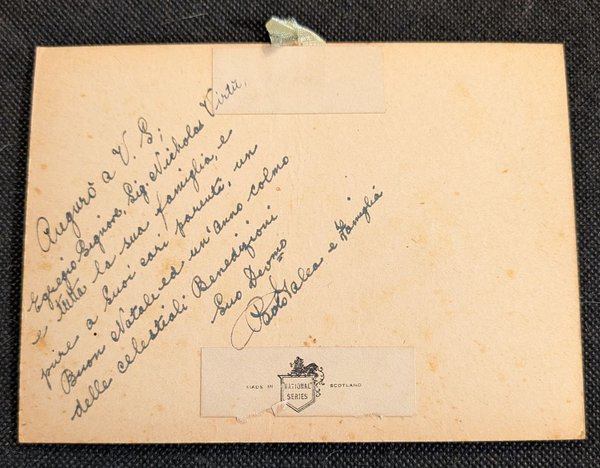 Auguro a V. S;
Egregio Signore, Sig. Nicholas Virtù,
e tutta la sua famiglia, e
pure a Suoi cari parenti, un
Buon Natale ed un'anno colmo
delle celestiali Benedizioni
Suo Devmo
e Famiglia
MADE IN NATIONAL SERIES SCOTLAND